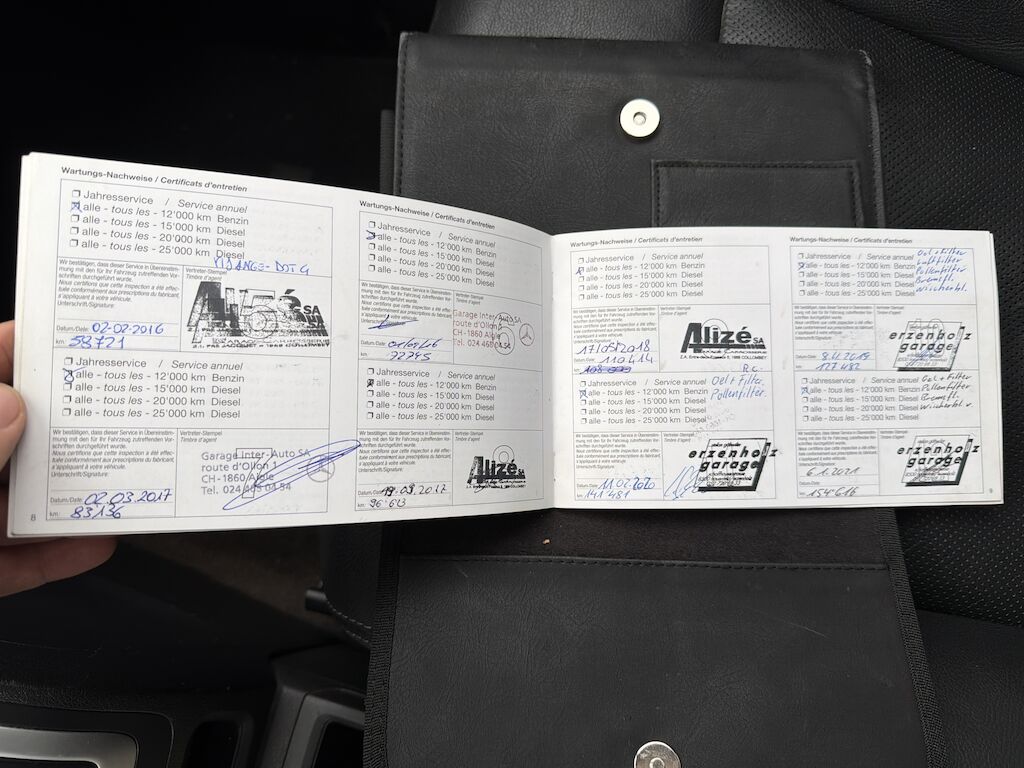 Wartungs-Nachweise / Certificats d'entretien
Jahresservice / Service annuel
alle - tous les - 12'000 km Benzin
alle - tous les - 15'000 km Diesel
alle - tous les - 20'000 km Diesel
alle - tous les - 25'000 km Diesel
Wir bestätigen, dass dieser Service in Übereinstim-
mung mit den für Ihr Fahrzeug zutreffenden Vor-
schriften durchgeführt wurde.
Nous certifions que cette inspection a été effec-
tuée conformément aux prescriptions du fabricant,
s'appliquant à votre véhicule.
Unterschrift/Signature:
Vertreter-Stempel
Timbre d'agent
Alizé SA
Datum/Date: 02-02-2016
km: 58721
Jahresservice / Service annuel
alle - tous les - 12'000 km Benzin
alle - tous les - 15'000 km Diesel
alle - tous les - 20'000 km Diesel
alle - tous les - 25'000 km Diesel
Wir bestätigen, dass dieser Service in Übereinstim-
mung mit den für Ihr Fahrzeug zutreffenden Vor-
schriften durchgeführt wurde.
Nous certifions que cette inspection a été effec-
tuée conformément aux prescriptions du fabricant,
s'appliquant à votre véhicule.
Unterschrift/Signature:
Vertreter-Stempel
Timbre d'agent
Garage Inter-Auto SA
route d'Ollon 1
CH-1860 Aigle
Tel. 024 465 04 54
Datum/Date: 02.03.2017
km: 83136
8
Wartungs-Nachweise / Certificats d'entretien
Jahresservice / Service annuel
alle - tous les - 12'000 km Benzin
alle - tous les - 15'000 km Diesel
alle - tous les - 20'000 km Diesel
alle - tous les - 25'000 km Diesel
Wir bestätigen, dass dieser Service in Übereinstim-
mung mit den für Ihr Fahrzeug zutreffenden Vor-
schriften durchgeführt wurde.
Nous certifions que cette inspection a été effec-
tuée conformément aux prescriptions du fabricant,
s'appliquant à votre véhicule.
Vertreter-Stempel
Timbre d'agent
Garage Inter-Auto SA
route d'Ollon 1
CH-1860 Aigle
Tel. 024 465 04 54
Datum/Date:
km: 72245
Jahresservice / Service annuel
alle - tous les - 12'000 km Benzin
alle - tous les - 15'000 km Diesel
alle - tous les - 20'000 km Diesel
alle - tous les - 25'000 km Diesel
Wir bestätigen, dass dieser Service in Übereinstim-
mung mit den für Ihr Fahrzeug zutreffenden Vor-
schriften durchgeführt wurde.
Nous certifions que cette inspection a été effec-
tuée conformément aux prescriptions du fabricant,
s'appliquant à votre véhicule.
Unterschrift/Signature:
Vertreter-Stempel
Timbre d'agent
Alizé SA
Datum/Date: 09.2017
km: 96'613
Wartungs-Nachweise / Certificats d'entretien
Jahresservice / Service annuel
alle - tous les - 12'000 km Benzin
alle - tous les - 15'000 km Diesel
alle - tous les - 20'000 km Diesel
alle - tous les - 25'000 km Diesel
Wir bestätigen, dass dieser Service in Übereinstim-
mung mit den für Ihr Fahrzeug zutreffenden Vor-
schriften durchgeführt wurde.
Nous certifions que cette inspection a été effec-
tuée conformément aux prescriptions du fabricant,
s'appliquant à votre véhicule.
Vertreter-Stempel
Timbre d'agent
Alizé SA
17/05/2018
110414
Jahresservice / Service annuel
alle - tous les - 12'000 km Benzin
alle - tous les - 15'000 km Diesel
alle - tous les - 20'000 km Diesel
alle - tous les - 25'000 km Diesel
Oel + Filter.
Pollenfilter.
Wir bestätigen, dass dieser Service in Übereinstim-
mung mit den für Ihr Fahrzeug zutreffenden Vor-
schriften durchgeführt wurde.
Nous certifions que cette inspection a été effec-
tuée conformément aux prescriptions du fabricant,
s'appliquant à votre véhicule.
Unterschrift/Signature:
Vertreter-Stempel
Timbre d'agent
erzenholz
garage
Datum/Date: 11.02.2020
km: 141'481
Wartungs-Nachweise / Certificats d'entretien
Jahresservice / Service annuel
alle - tous les - 12'000 km Benzin
alle - tous les - 15'000 km Diesel
alle - tous les - 20'000 km Diesel
alle - tous les - 25'000 km Diesel
Oel + Filter
Luftfilter
Pollenfilter
Bremsfl.
Wischerbl.
Wir bestätigen, dass dieser Service in Übereinstim-
mung mit den für Ihr Fahrzeug zutreffenden Vor-
schriften durchgeführt wurde.
Nous certifions que cette inspection a été effec-
tuée conformément aux prescriptions du fabricant,
s'appliquant à votre véhicule.
Unterschrift/Signature:
Vertreter-Stempel
Timbre d'agent
erzenholz
garage
Datum/Date:
km: 127'482
Jahresservice / Service annuel
alle - tous les - 12'000 km Benzin
alle - tous les - 15'000 km Diesel
alle - tous les - 20'000 km Diesel
alle - tous les - 25'000 km Diesel
Oel + Filter
Pollenfilter
Bremsfl.
Wischerbl. v.
Wir bestätigen, dass dieser Service in Übereinstim-
mung mit den für Ihr Fahrzeug zutreffenden Vor-
schriften durchgeführt wurde.
Nous certifions que cette inspection a été effec-
tuée conformément aux prescriptions du fabricant,
s'appliquant à votre véhicule.
Unterschrift/Signature:
Vertreter-Stempel
Timbre d'agent
erzenholz
garage
Datum/Date: 6.1.2021
km: 154'616
9